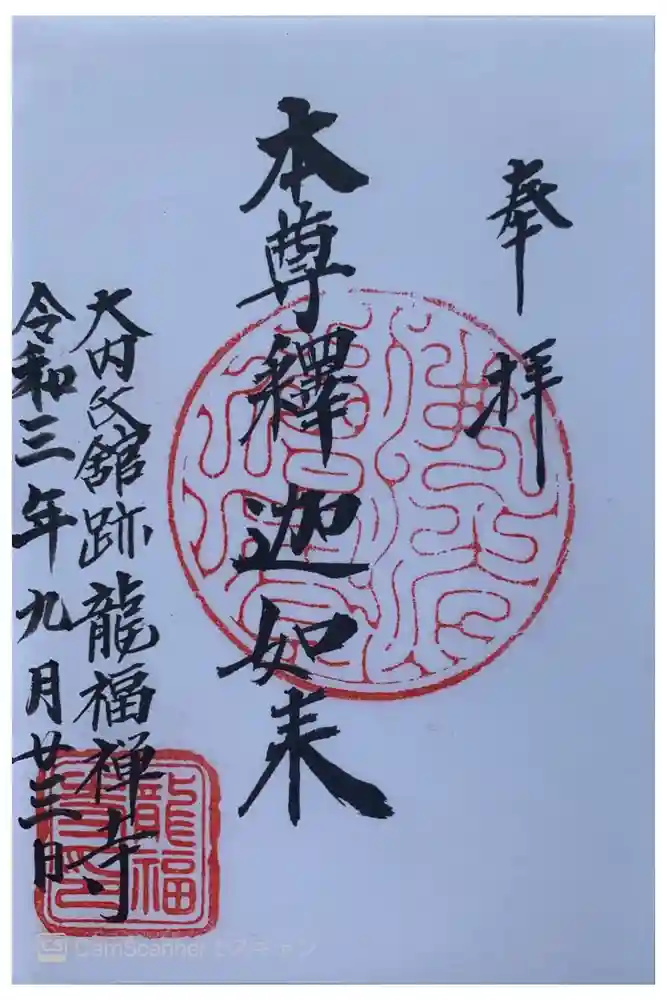 奉拝
本尊釋迦如来
大内氏舘跡龍福禅寺
令和三年九月廿三日
龍福
CS CamScanner でスキャン